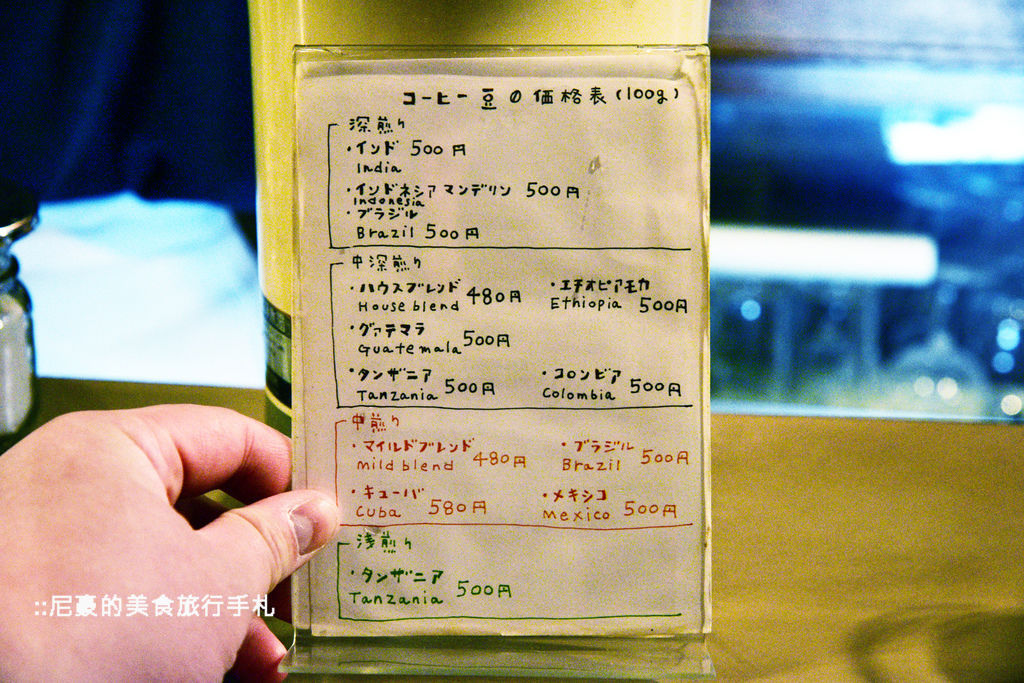 コーヒー豆の価格表(100g)
深煎り
・インド 500円
India
・インドネシア マンデリン 500円
Indonesia
・ブラジル
Brazil 500円
中深煎り
・ハウスブレンド 480円
House blend
・エチオピアモカ
Ethiopia 500円
・グァテマラ 500円
Guatemala
・タンザニア 500円
Tanzania
・コロンビア 500円
Colombia
中煎り
・マイルドブレンド 480円
mild blend
・ブラジル 500円
Brazil
・キューバ 580円
Cuba
・メキシコ 500円
Mexico
浅煎り
・タンザニア 500円
Tanzania
::尼豪的美食旅行手札